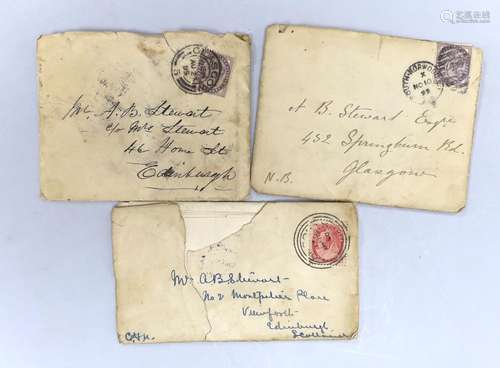 Mr A. B. Stewart
c/o Mrs Stewart
46 Home St
Edinburgh
A B. Stewart Esqre
452 Springburn Rd.
Glasgow
N.B.
X
NO 10
Mr A B Stewart
No 2 Montpelier Place
Viewforth
Edinburgh
Scotland